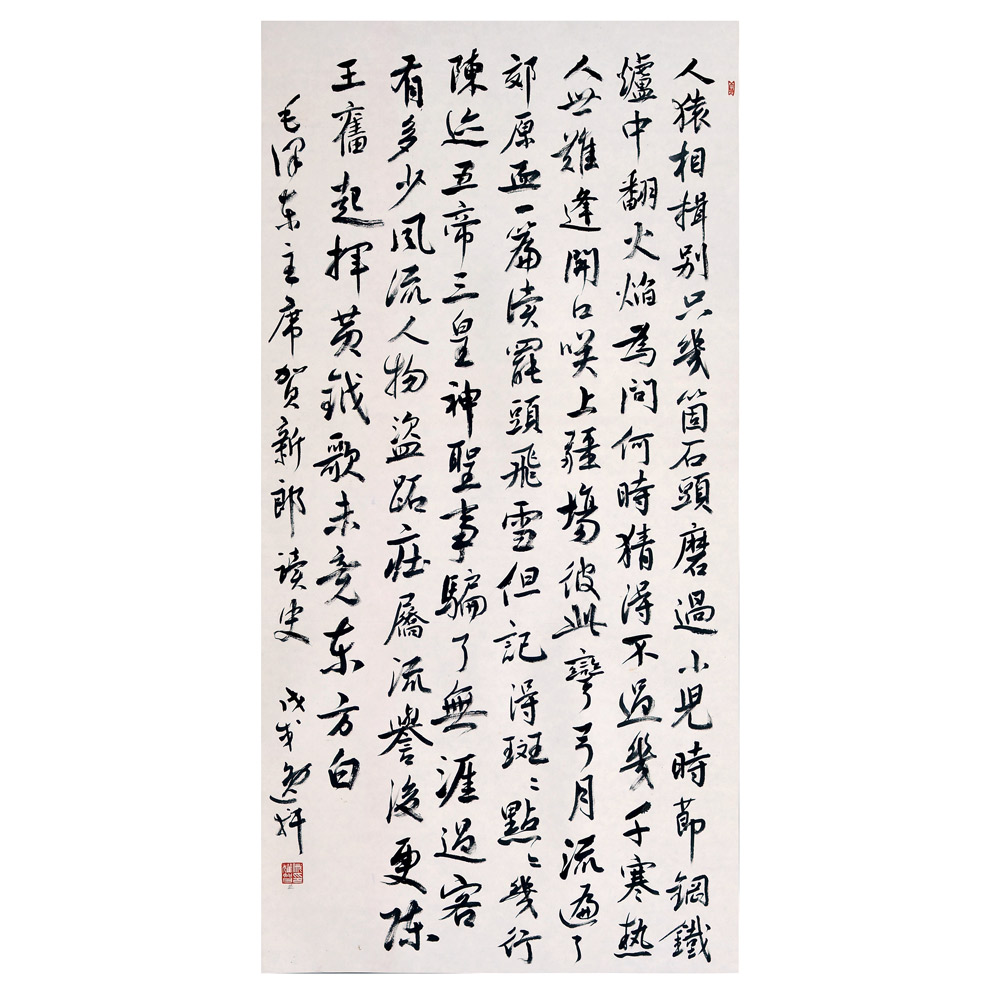 人猿相揖別只幾箇石頭磨過小兒時節鋼鐵
爐中翻火焰為問何時猜得不過幾千寒熱
人世難逢開口咲上疆場彼此彎弓月流遍了
郊原血一篇读罷頭飛雪但記得斑〻點〻幾行
陳迹五帝三皇神聖事騙了無涯過客
有多少風流人物盜跖莊屩流譽後更陳
王奮起揮黃鉞歌未竟东方白
毛泽东主席賀新郎读史 戊戌